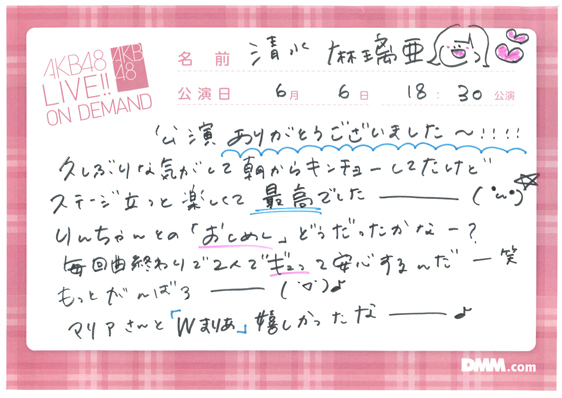 AKB48
LIVE!!
ON DEMAND
AKB
48
名前 清水 麻璃亜
公演日 6月 6日 18:30 公演
公演ありがとうございました〜!!!!
久しぶりな気がして朝からキンチョーしてたけど
ステージ立つと楽しくて最高でした――
りんちゃんとの「おじめし」どうだったかなー?
毎回曲終わりで2人でぎゅって安心するんだー笑
もっとがんばろ――(˙▽˙)♪
マリアさんと「Wまりあ」嬉しかったな――♪
DMM.com